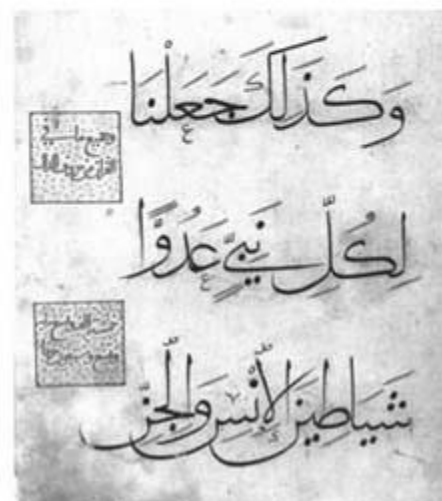 وَكَذَلِكَ جَعَلْنَا
لِكُلِّ نَبِيٍّ عَدُوًّا
شَيَاطِينَ الْإِنْسِ وَالْجِنِّ